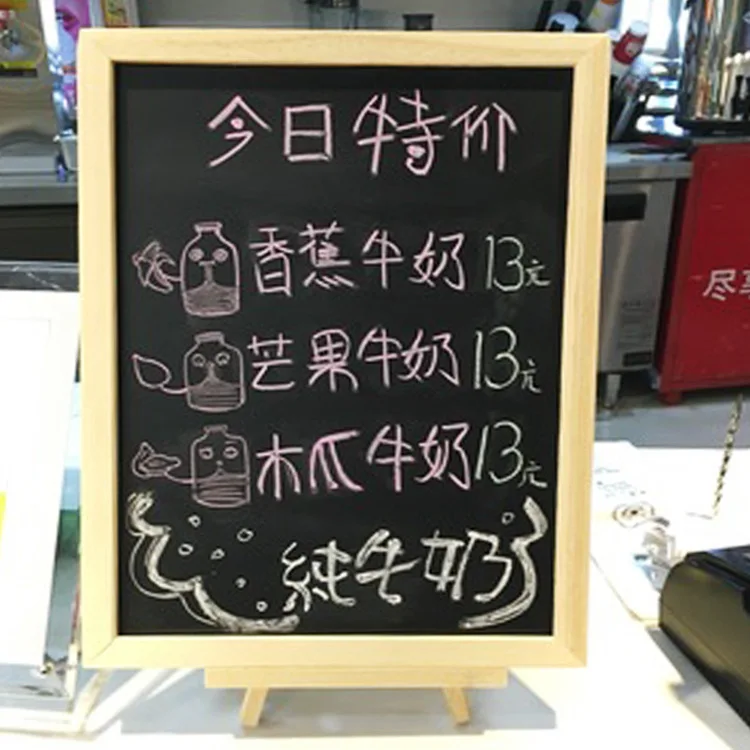 今日特价
香蕉牛奶 13元
芒果牛奶 13元
木瓜牛奶 13元
純牛奶
尽享